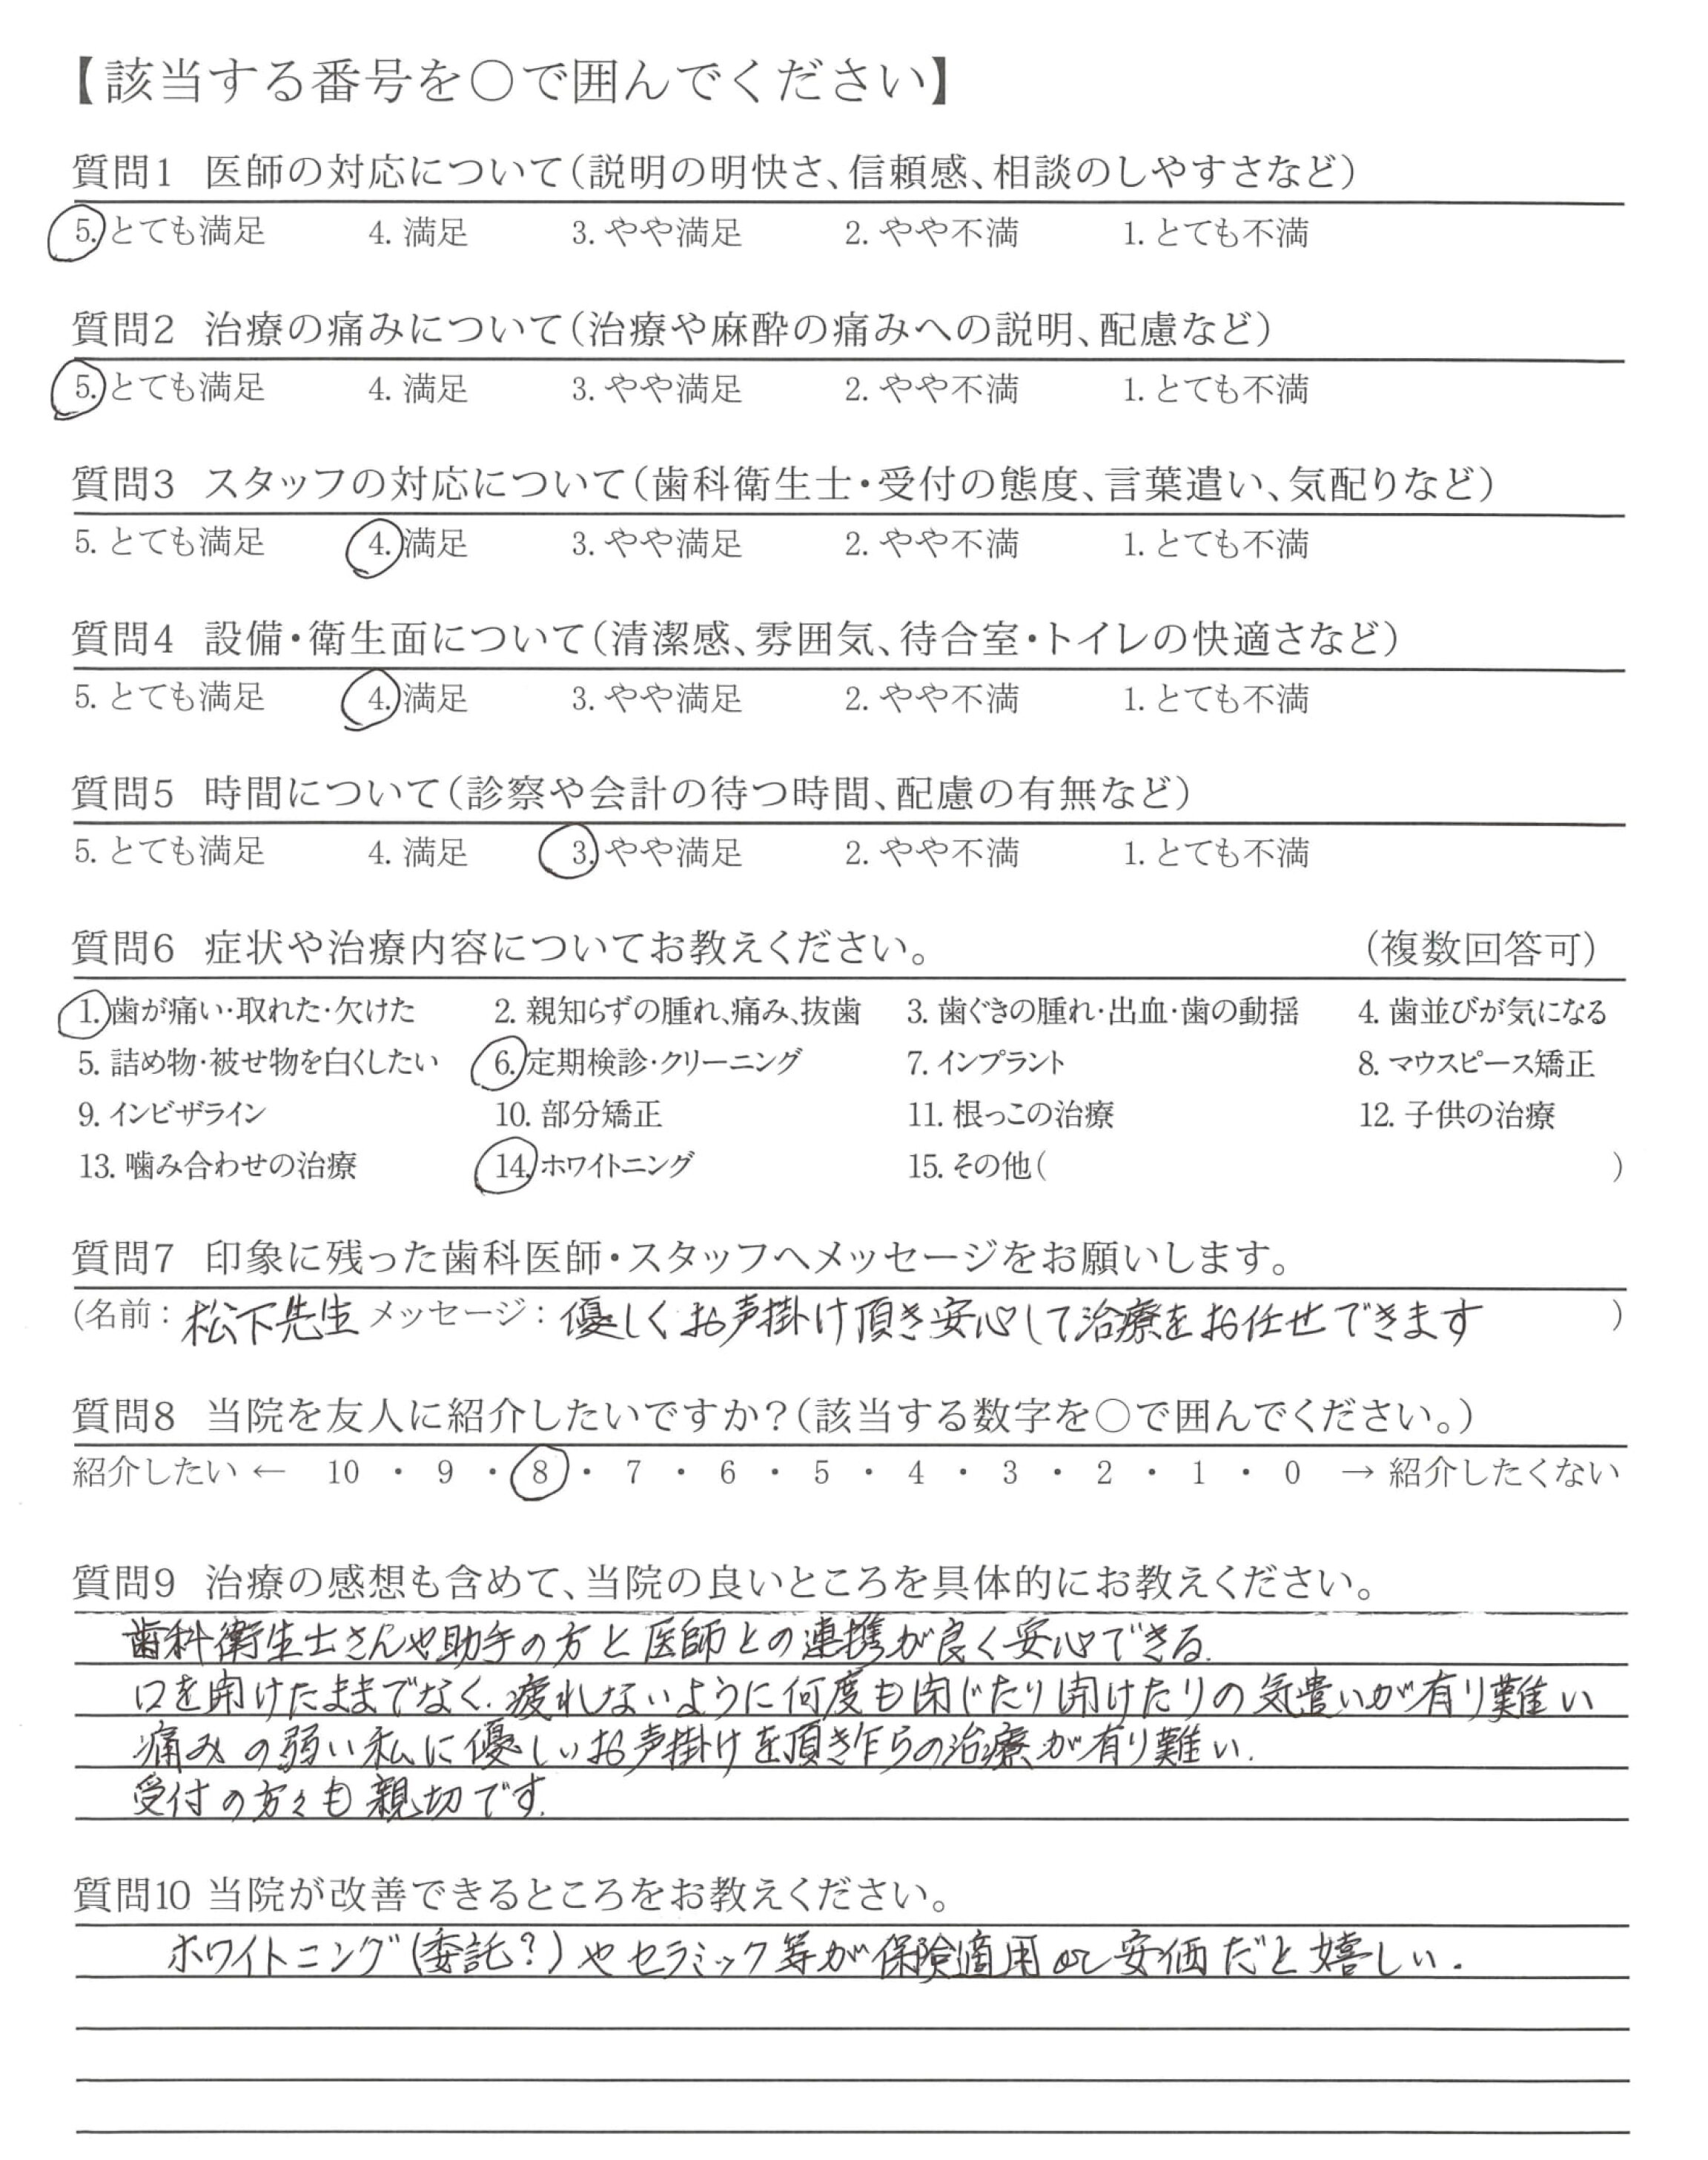 【該当する番号を○で囲んでください】
質問1 医師の対応について(説明の明快さ、信頼感、相談のしやすさなど)
5. とても満足 4. 満足 3. やや満足 2. やや不満 1. とても不満
質問2 治療の痛みについて(治療や麻酔の痛みへの説明、配慮など)
5. とても満足 4. 満足 3. やや満足 2. やや不満 1. とても不満
質問3 スタッフの対応について(歯科衛生士・受付の態度、言葉遣い、気配りなど)
5. とても満足 4. 満足 3. やや満足 2. やや不満 1. とても不満
質問4 設備・衛生面について(清潔感、雰囲気、待合室・トイレの快適さなど)
5. とても満足 4. 満足 3. やや満足 2. やや不満 1. とても不満
質問5 時間について(診察や会計の待つ時間、配慮の有無など)
5. とても満足 4. 満足 3. やや満足 2. やや不満 1. とても不満
質問6 症状や治療内容についてお教えください。 (複数回答可)
1. 歯が痛い・取れた・欠けた 2. 親知らずの腫れ、痛み、抜歯 3. 歯ぐきの腫れ・出血・歯の動揺 4. 歯並びが気になる
5. 詰め物・被せ物を白くしたい 6. 定期検診・クリーニング 7. インプラント 8. マウスピース矯正
9. インビザライン 10. 部分矯正 11. 根っこの治療 12. 子供の治療
13. 噛み合わせの治療 14. ホワイトニング 15. その他( )
質問7 印象に残った歯科医師・スタッフへメッセージをお願いします。
(名前: 松下先生 メッセージ: 優しくお声掛け頂き安心して治療をお任せできます )
質問8 当院を友人に紹介したいですか?(該当する数字を○で囲んでください。)
紹介したい ← 10 ・ 9 ・ 8 ・ 7 ・ 6 ・ 5 ・ 4 ・ 3 ・ 2 ・ 1 ・ 0 → 紹介したくない
質問9 治療の感想も含めて、当院の良いところを具体的にお教えください。
歯科衛生士さんや助手の方と医師との連携が良く安心できる.
口を開けたままでなく、疲れないように何度も閉じたり開けたりの気遣いが有り難い
痛みの弱い私に優しいお声掛けを頂き乍らの治療が有り難い.
受付の方々も親切です.
質問10 当院が改善できるところをお教えください。
ホワイトニング(委託?)やセラミック等が保険適用or安価だと嬉しい.